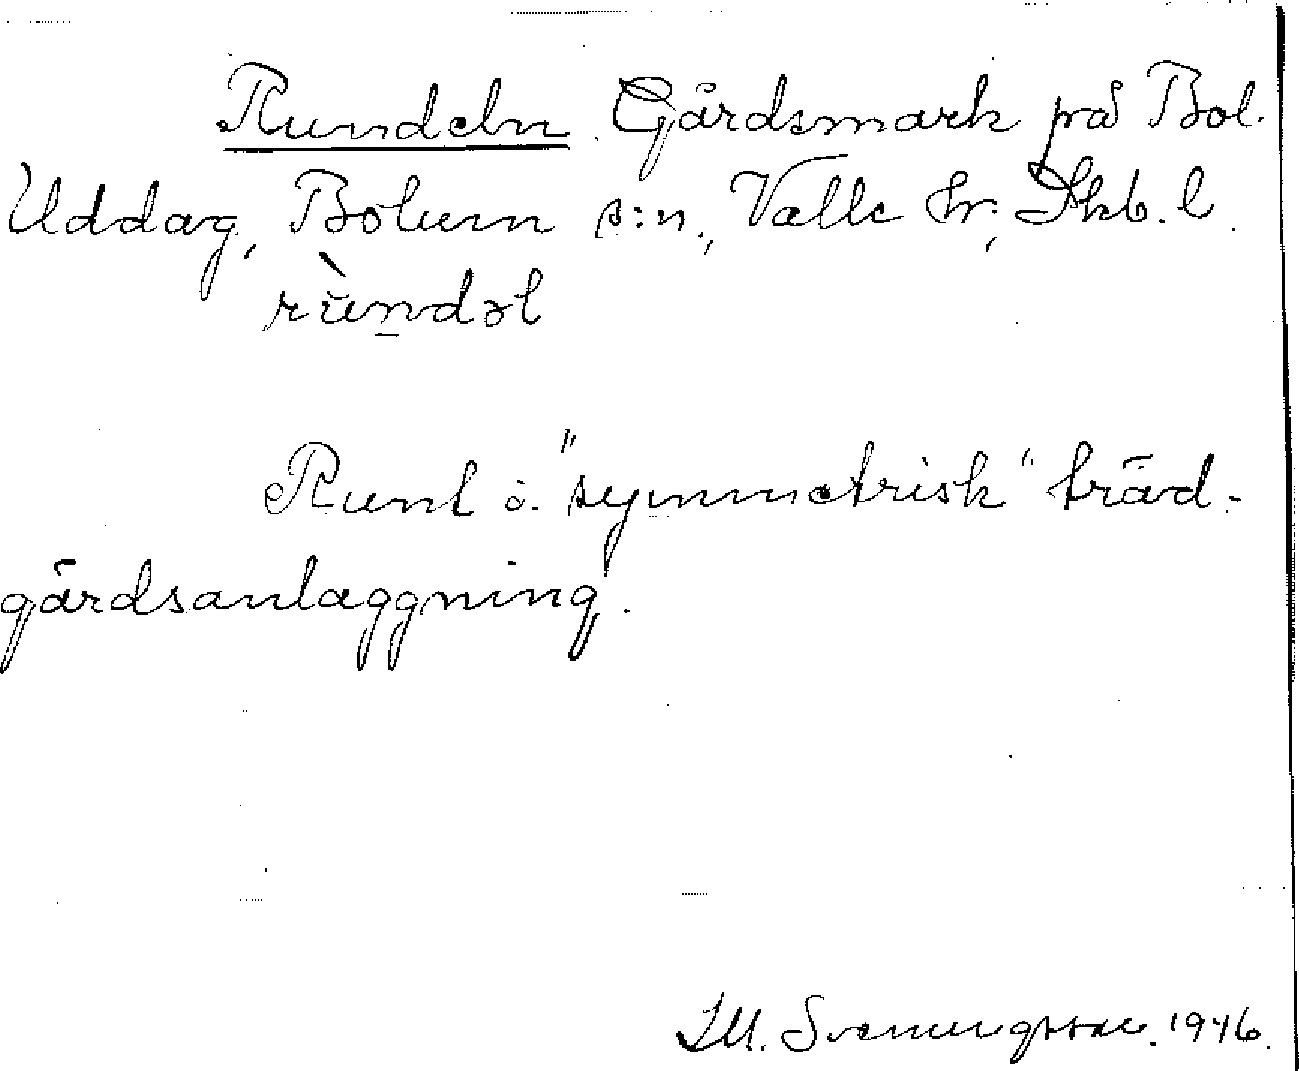 Rundeln Gårdsmark på Bol.
Uddag, Bolum s:n., Valle hr., Skb. l.
rùndəl
Runt o. "symmetrisk" träd-
gårdsanläggning.
Svenningsson. 1946.